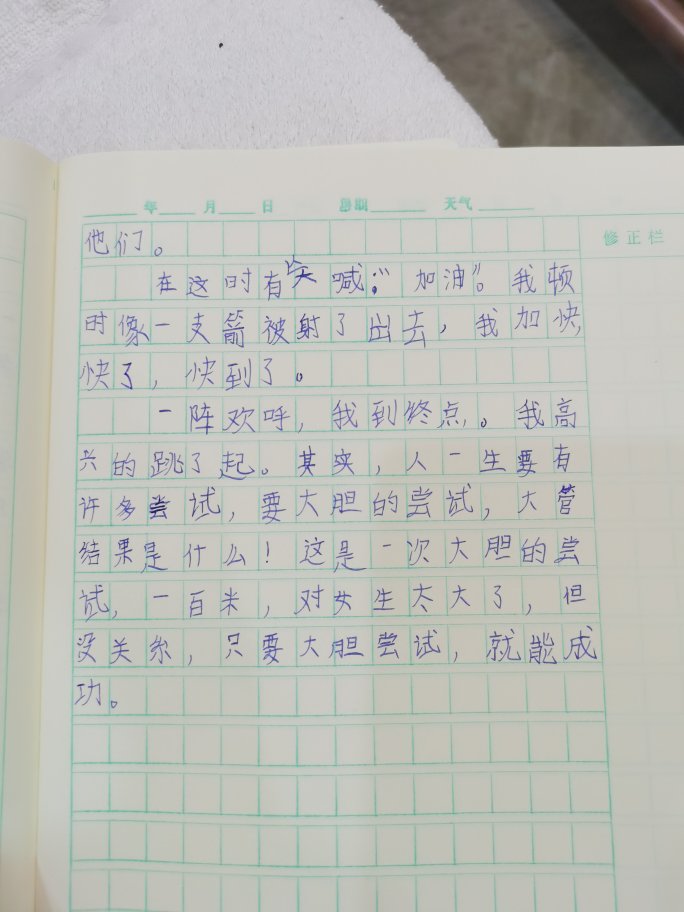 年 月 日 星期 天气
修正栏
他们。
在这时有人喊:"加油"。我顿
时像一支箭被射了出去,我加快,
快了,快到了。
一阵欢呼,我到终点。我高
兴的跳了起。其实,人一生要有
许多尝试,要大胆的尝试,大管
结果是什么!这是一次大胆的尝
试,一百米,对女生太大了,但
没关系,只要大胆尝试,就能成
功。